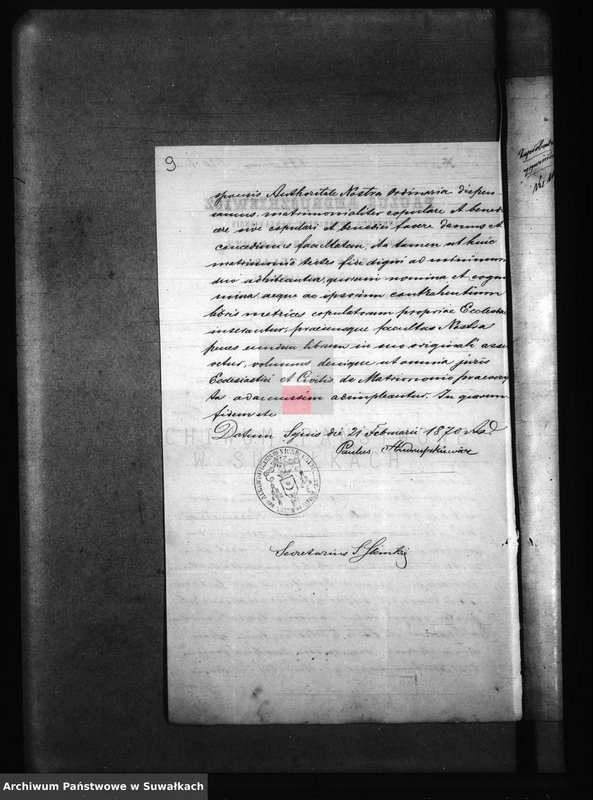 9
sponsis Authoritate Nostra Ordinaria dispen
samus, matrimonialiter copulare et bened
cere sive copulari et benedici facere damus et
concedimus facultatem, ita tamen ut huic
matrimonio testes fide digni ad minimum
duo adhibeantur, quorum nomina et cogno
mina aeque ac ipsorum contrahentium
libris metrices copulatorum propriae Ecclesiae
inserantur, praesensque facultas Nostra
penes eundem librum in suo originali asser
vetur, volumus denique ut omnia juris
Ecclesiastici et Civilis de Matrimonio praescrip
ta adamussim adimpleantur. In quorum
fidem etc
Datum Sejnis die 21 Februarii 1870 Ad.
Paulus Andruszkiewicz
Secretarius S.
PAULUS ANDRUSZKIEWICZ
ARCHIWUM PAŃSTWOWE
W SUWAŁKACH
Archiwum Państwowe w Suwałkach